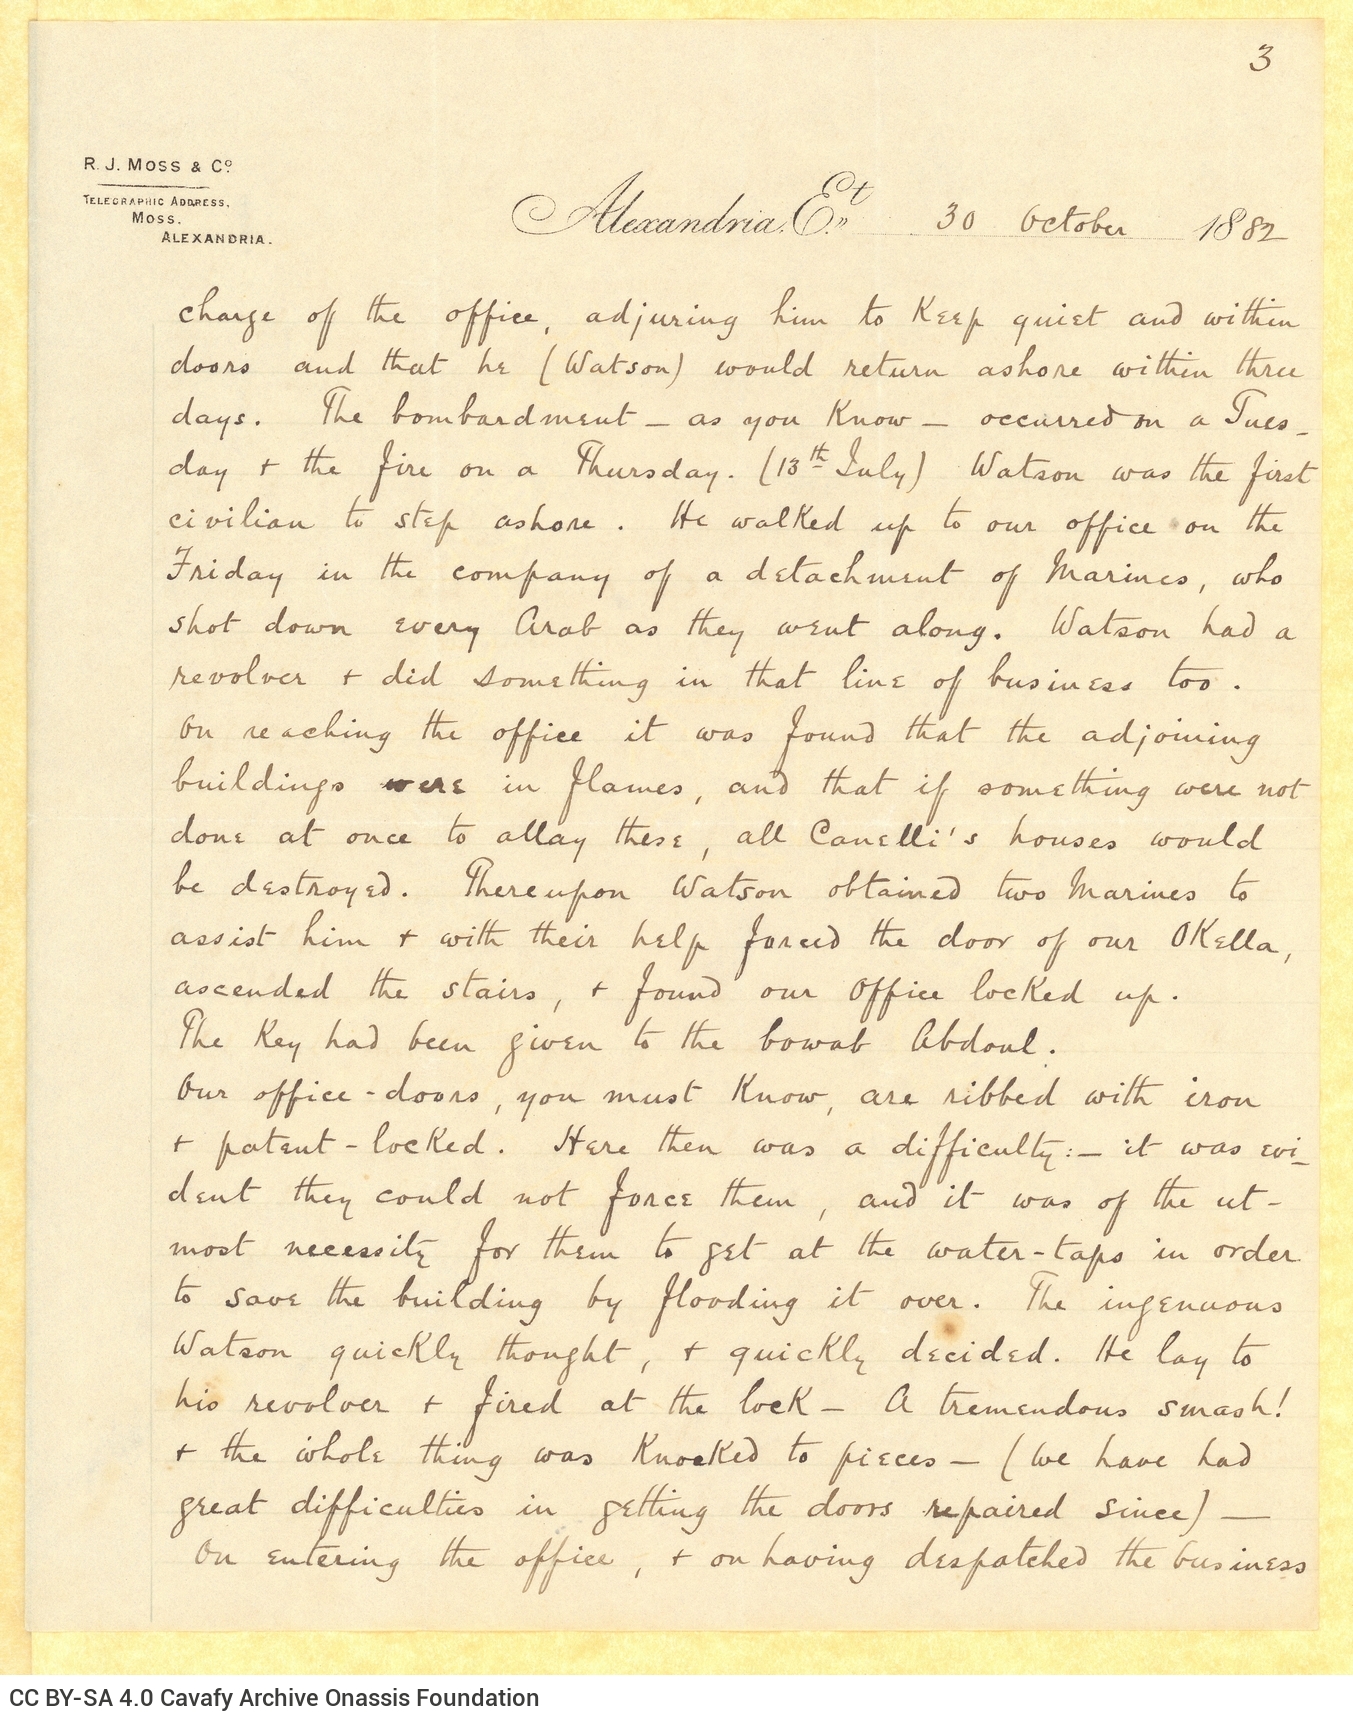 3
R. J. MOSS & Cº
TELEGRAPHIC ADDRESS.
MOSS.
ALEXANDRIA.
Alexandria, Et. 30 October 1882
charge of the office, adjuring him to keep quiet and within
doors and that he (Watson) would return ashore within three
days. The bombardment – as you know – occurred on a Tues-
day + the fire on a Thursday. (13th July) Watson was the first
civilian to step ashore. He walked up to our office on the
Friday in the company of a detachment of Marines, who
shot down every Arab as they went along. Watson had a
revolver + did something in that line of business too.
On reaching the office it was found that the adjoining
buildings were in flames, and that if something were not
done at once to allay these, all Canelli's houses would
be destroyed. Thereupon Watson obtained two Marines to
assist him + with their help forced the door of our Okella,
ascended the stairs, + found our office locked up.
The key had been given to the bowab Abdoul.
Our office-doors, you must know, are ribbed with iron
+ patent-locked. Here then was a difficulty:– it was evi-
dent they could not force them, and it was of the ut-
most necessity for them to get at the water-taps in order
to save the building by flooding it over. The ingenuous
Watson quickly thought, + quickly decided. He lay to
his revolver + fired at the lock – A tremendous smash!
+ the whole thing was knocked to pieces – (We have had
great difficulties in getting the doors repaired since) —
On entering the office, + on having despatched the business
CC BY-SA 4.0 Cavafy Archive Onassis Foundation